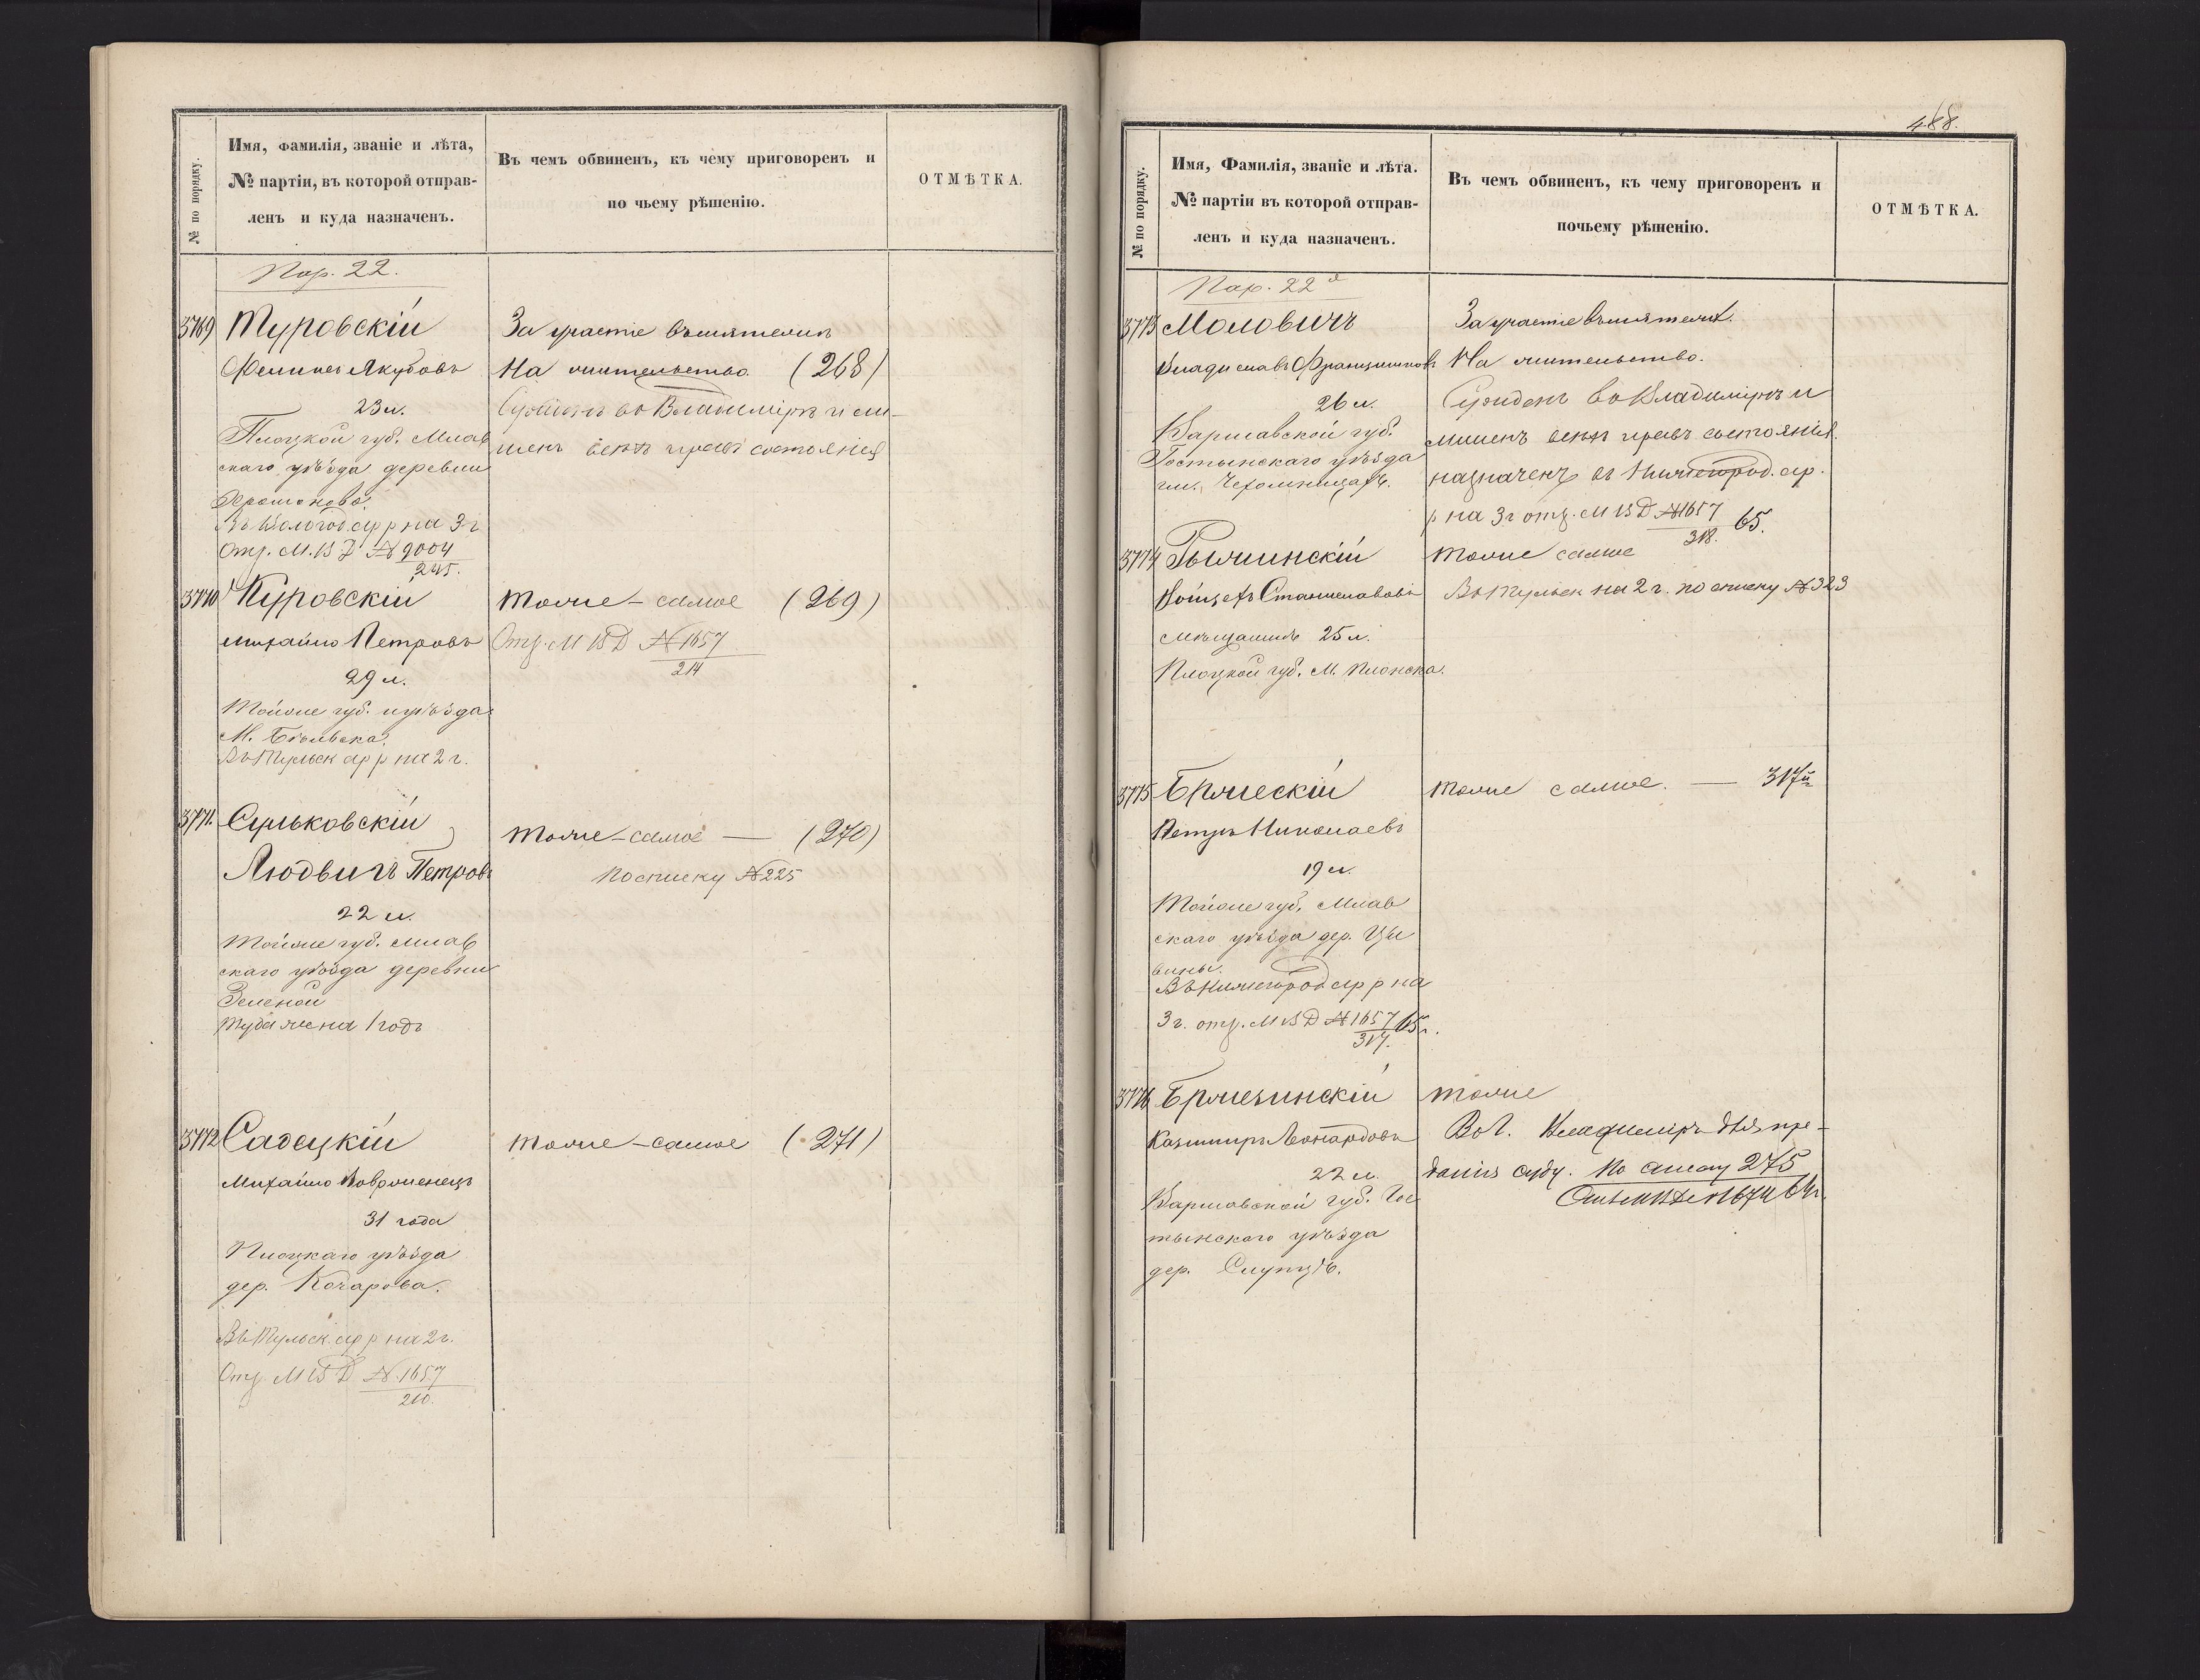 № по порядку.
Имя, фамилія, званіе и лѣта,
№ партіи, въ которой отправ-
ленъ и куда назначенъ.
Въ чемъ обвиненъ, къ чему приговоренъ и
по чьему рѣшенію.
ОТМѢТКА.
Пар. 22.
3769 Туровскій
Феликсъ Якубовъ
23 л.
Плоцкой губ. Млав
скаго уѣзда деревни
Въ Вологод. ар р на 3 г
Отз. М. В Д № 9004
245.
За участіе въ мятежѣ
На жительство (268)
Сужденъ во Владимірѣ и ли-
шенъ всѣхъ правъ состоянія
3770 Куровскій
Михайло Петровъ
29 л.
Тойже губ. и уѣзда
М. Бѣльска.
Въ Тульск ар р на 2 г.
тоже-самое (269)
Отз. М В Д № 1657
214
3771. Сульковскій
Людвигъ Петровъ
22 л.
Тойже губ. Млав
скаго уѣзда деревни
Зеленой
Туда же на 1 годъ
тоже-самое — (270)
По списку № 225
3772 Садецкій
Михайло
31 года
Плоцкаго уѣзда
дер. Кочарова.
Въ Тульск. ар р на 2 г.
Отз. М В Д № 1657
210.
тоже-самое (271)
488.
№ по порядку.
Имя, Фамилія, званіе и лѣта.
№ партіи въ которой отправ-
ленъ и куда назначенъ.
Въ чемъ обвиненъ, къ чему приговоренъ и
почьему рѣшенію.
ОТМѢТКА.
Пар. 22я
3773 Моловичъ
Владиславъ Францишковъ
26 л.
Варшавской губ.
Гостынскаго уѣзда
гм.
За участіе въ мятежѣ.
На жительство.
Сужденъ во Владимірѣ и
лишенъ всѣхъ правъ состоянія.
назначенъ въ Нижегород. ар.
р на 3 г отз. М В Д № 1657 65.
318.
3774
Войцехъ Станиславовъ
мѣщанинъ 25 л.
Плоцкой губ. М. Плонска.
тоже самое
Въ Тульск на 2 г. по списку № 323
3775 Бржескій
Петръ Николаевъ
19 л.
Тойже губ. Млав
скаго уѣзда дер. Цы
вины.
Въ Нижегород ар р на
3 г. отз. М В Д № 1657 65 г.
317.
тоже самое. — 317й
3776 Бржезинскій
Казимиръ Леонардовъ
22 л.
Варшавской губ. Гос
тынскаго уѣзда
дер.
тоже
Во г. Владиміръ для пре-
данія суду. По списку 275